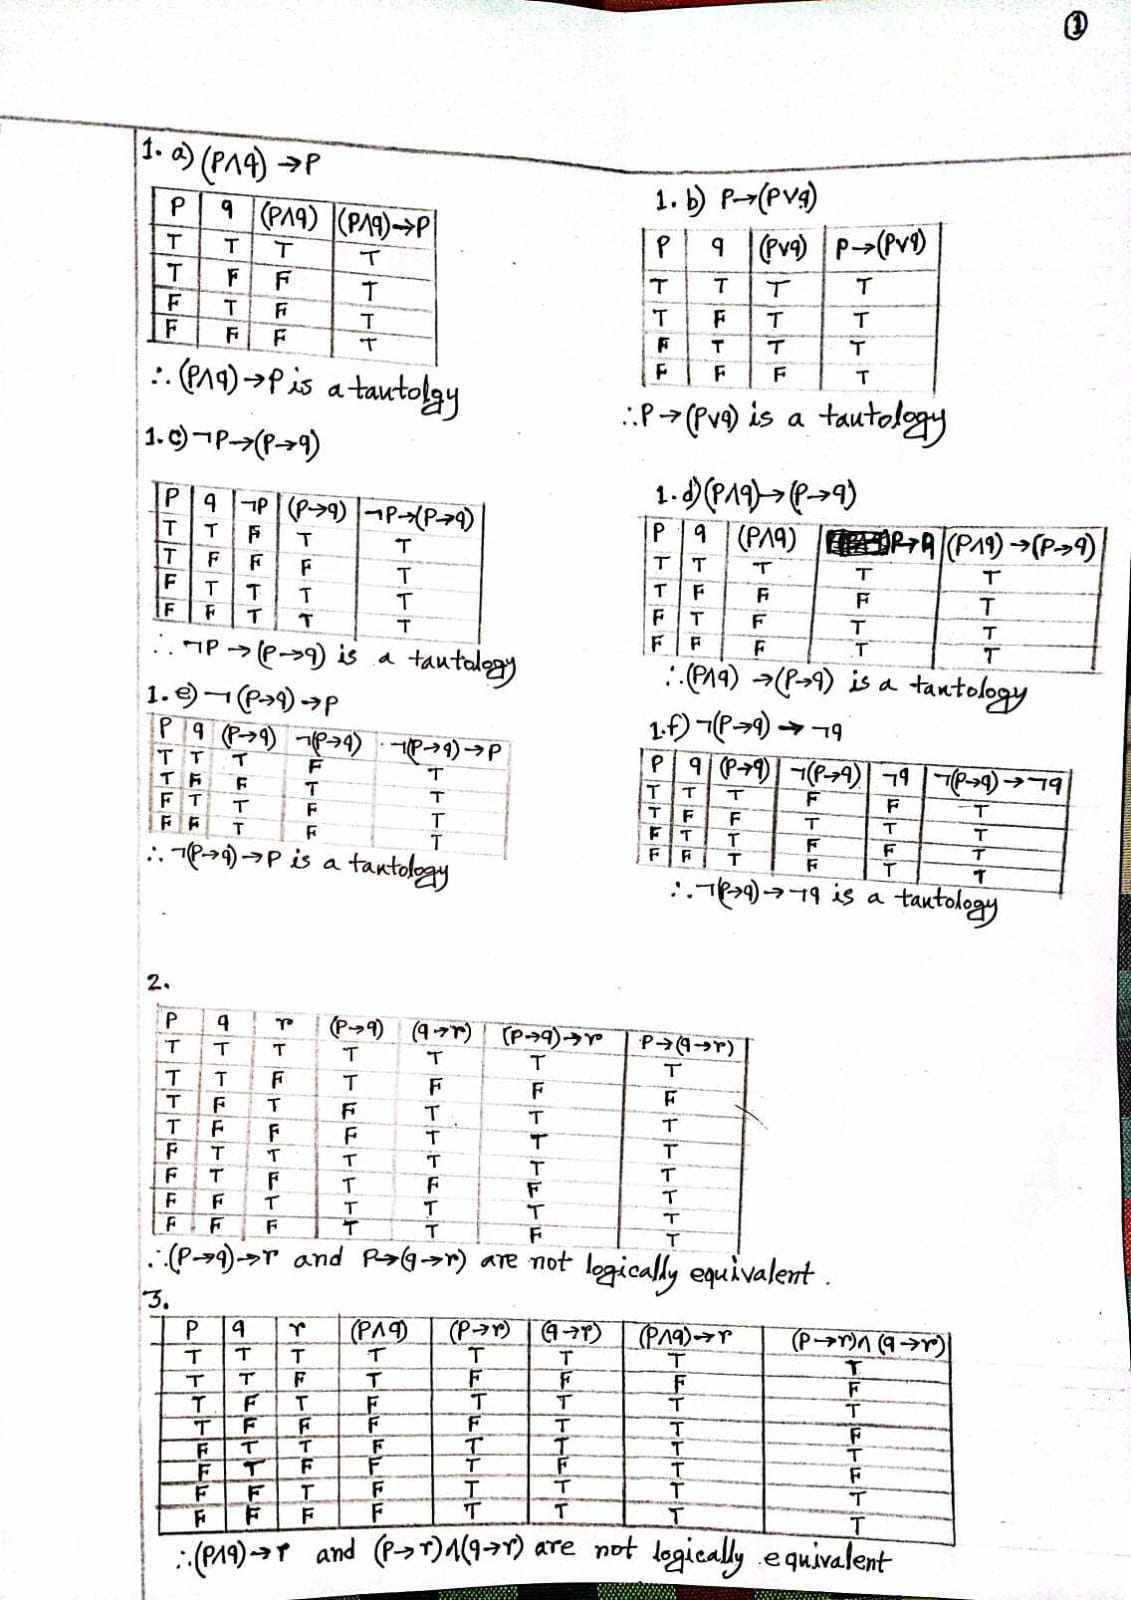 ①
1. a) (P∧q) → P
P q (P∧q) (P∧q)→P
T T T T
T F F T
F T F T
F F F T
∴ (P∧q) → P is a tautolgy
1. b) P→(P∨q)
P q (P∨q) P→(P∨q)
T T T T
T F T T
F T T T
F F F T
∴ P → (P∨q) is a tautology
1. c) ¬P→(P→q)
P q ¬P (P→q) ¬P→(P→q)
T T F T T
T F F F T
F T T T T
F F T T T
∴ ¬P → (P→q) is a tautology
1. d) (P∧q)→(P→q)
P q (P∧q) P→q (P∧q) →(P→q)
T T T T T
T F F F T
F T F T T
F F F T T
∴ (P∧q) →(P→q) is a tautology
1. e) ¬(P→q)→P
P q (P→q) ¬(P→q) ¬(P→q)→P
T T T F T
T F F T T
F T T F T
F F T F T
∴ ¬(P→q)→P is a tautology
1.f) ¬(P→q) → ¬q
P q (P→q) ¬(P→q) ¬q ¬(P→q) → ¬q
T T T F F T
T F F T T T
F T T F F T
F F T F T T
∴ ¬(P→q)→ ¬q is a tautology
2.
P q r (P→q) (q→r) (P→q)→r P→(q→r)
T T T T T T T
T T F T F F F
T F T F T T T
T F F F T T T
F T T T T T T
F T F T F F T
F F T T T T T
F F F T T F T
∴ (P→q)→r and P→(q→r) are not logically equivalent.
3.
P q r (P∧q) (P→r) (q→r) (P∧q)→r (P→r)∧(q→r)
T T T T T T T T
T T F T F F F F
T F T F T T T T
T F F F F T T F
F T T F T T T T
F T F F T F T F
F F T F T T T T
F F F F T T T T
∴ (P∧q)→r and (P→r)∧(q→r) are not logically equivalent